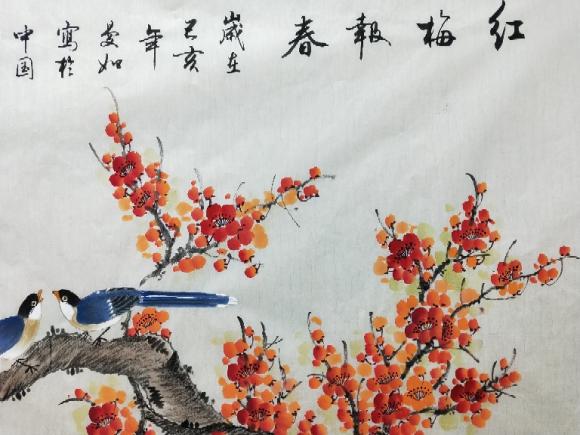 红梅報春
歲在
己亥
年
曼如
寫於
中国